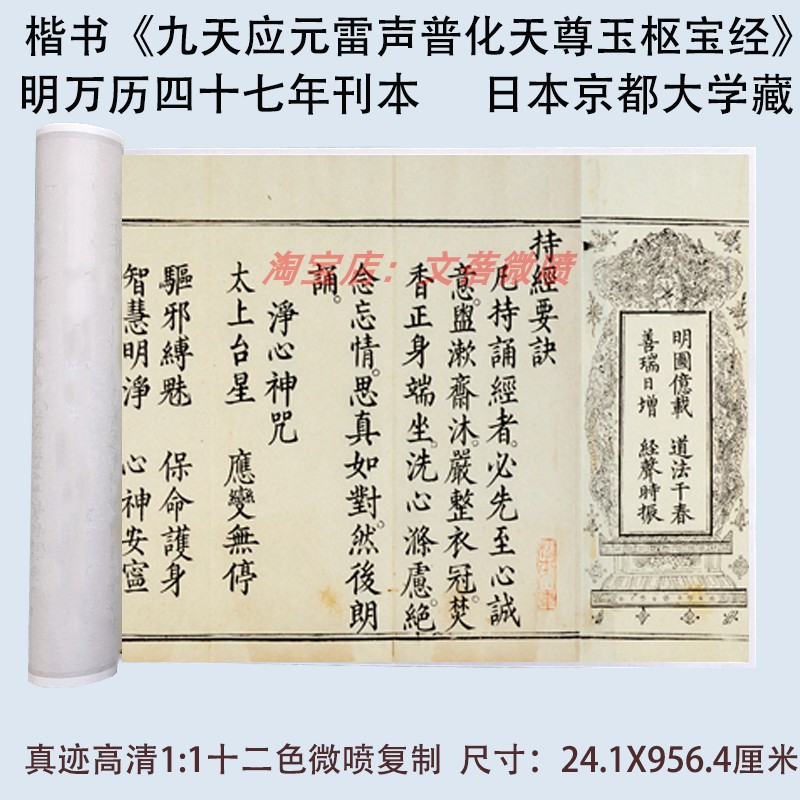 楷书《九天应元雷声普化天尊玉枢宝经》
明万历四十七年刊本 日本京都大学藏
明圖億載 道法千春
善瑞日增 經聲時振
持經要訣
凡持誦經者。必先至心誠
意。盥漱齋沐。嚴整衣冠。焚
香正身端坐。洗心滌慮。絕
念忘情。思真如對。然後朗
誦。
淨心神咒
太上台星 應變無停
驅邪縛魅 保命護身
智慧明淨 心神安寧
淘宝店：文菩微喷
真迹高清1:1十二色微喷复制 尺寸：24.1X956.4厘米